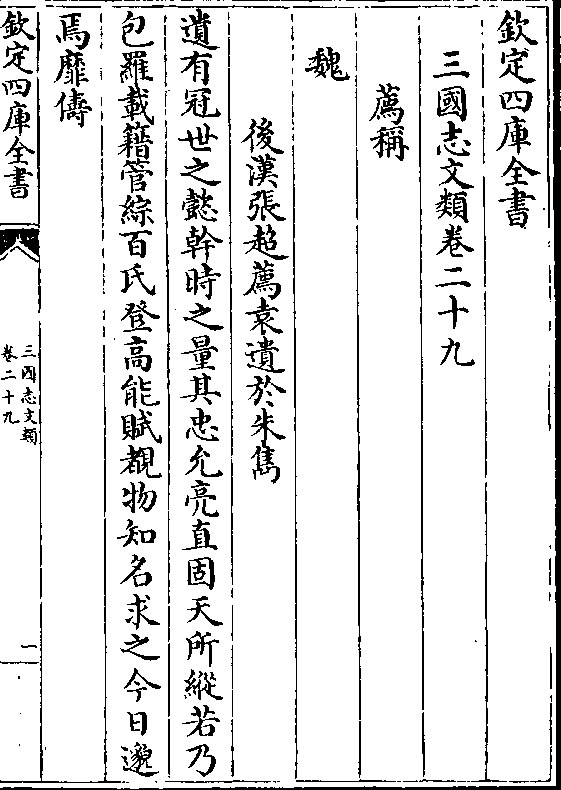 欽定四庫全書
三國志文類卷二十九
薦稱
魏
後漢張超薦袁遺於朱雋
遺有冠世之懿幹時之量其忠允亮直固天所縱若乃
包羅載籍管綜百氏登高能賦覩物知名求之今日邈
焉靡儔
欽定四庫全書
三國志文類
卷二十九
一